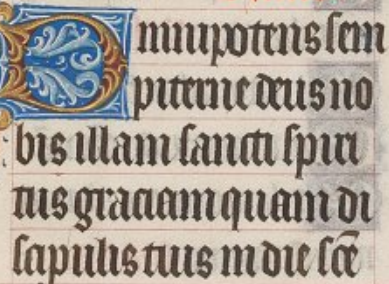 Omnipotens sem
piterne deus no
bis illam sancti spiri
tus graciam quam di
scipulis tuis in die scē